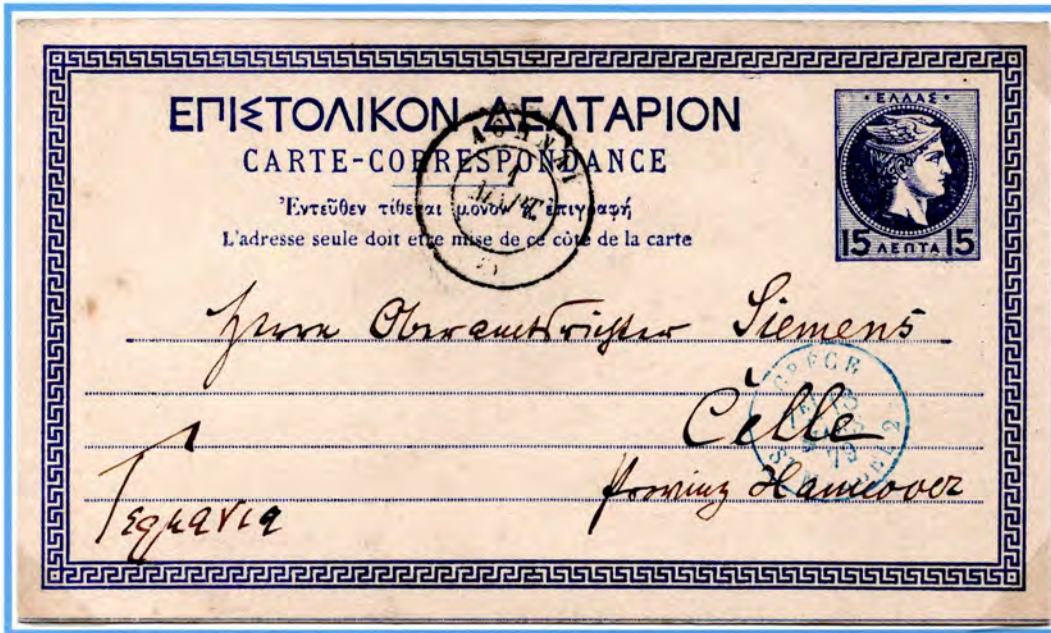 ΕΠΙΣΤΟΛΙΚΟΝ ΔΕΛΤΑΡΙΟΝ
CARTE-CORRESPONDANCE
Ἐντεῦθεν τίθεται μόνον ἡ ἐπιγραφή
L'adresse seule doit etre mise de ce côté de la carte
· ΕΛΛΑΣ ·
15 ΛΕΠΤΑ 15
ΑΘΗΝΑΙ
1
Herrn Oberamtsrichter Siemens
Celle
Provinz Hannover
Γερμανια
GRECE
79